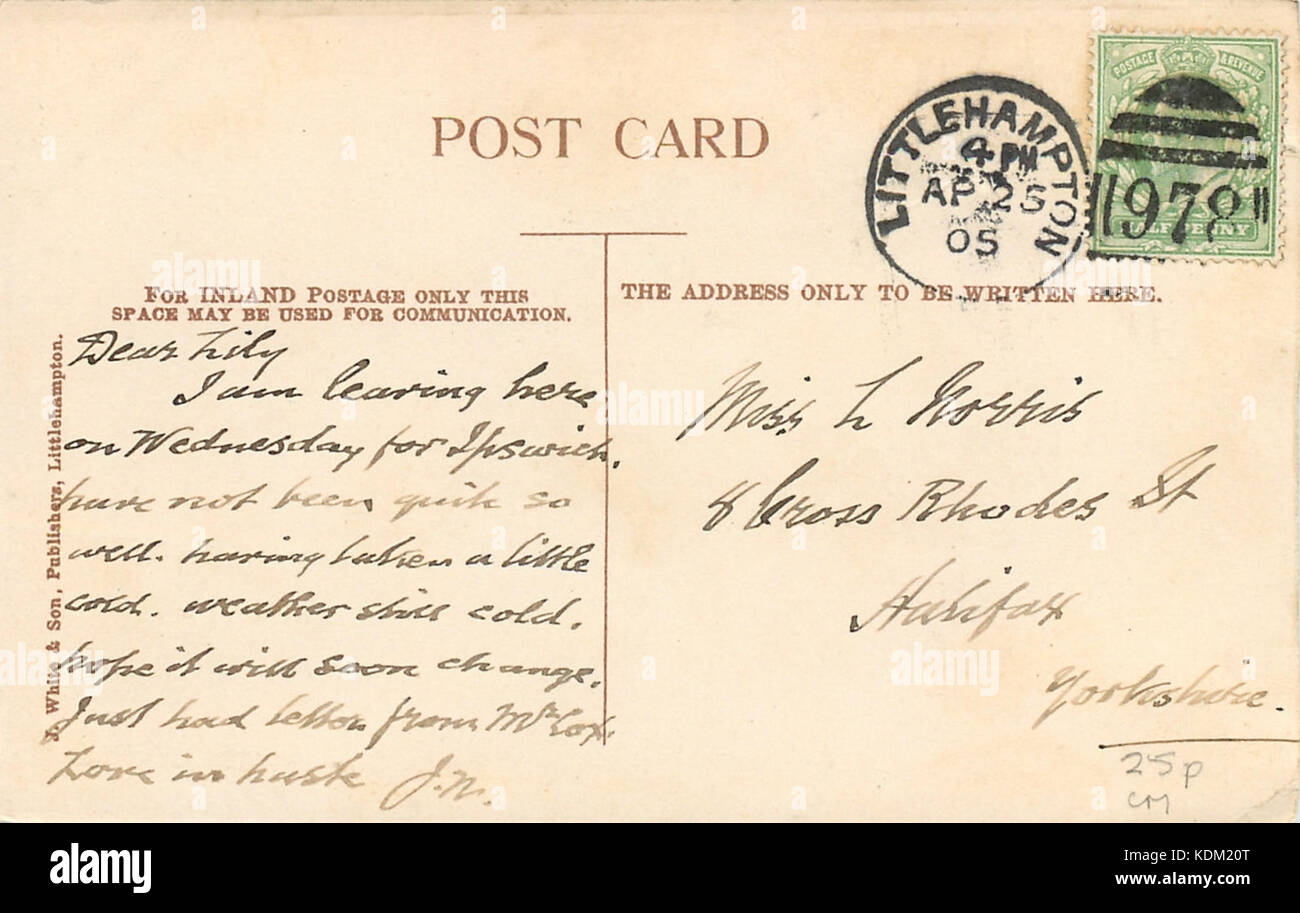 POST CARD
LITTLEHAMPTON
4 PM
AP 25
05
POSTAGE & REVENUE
978
HALFPENNY
FOR INLAND POSTAGE ONLY THIS
SPACE MAY BE USED FOR COMMUNICATION.
THE ADDRESS ONLY TO BE WRITTEN HERE.
J. White & Son, Publishers, Littlehampton.
Dear Lily
I am leaving here
on Wednesday for Ipswich.
have not been quite so
well. having taken a little
cold. weather still cold.
hope it will soon change.
Just had letter from Mr Cox.
Love in haste J.N.
Miss L Norris
8 Cross Rhodes St
Halifax
Yorkshire.
25p
CM
alamy
alamy
alamy
alamy
alamy
Image ID: KDM20T
www.alamy.com